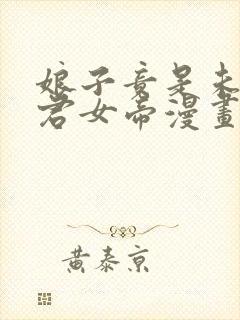 娘子竟是未
君女帝漫畫
黃泰京